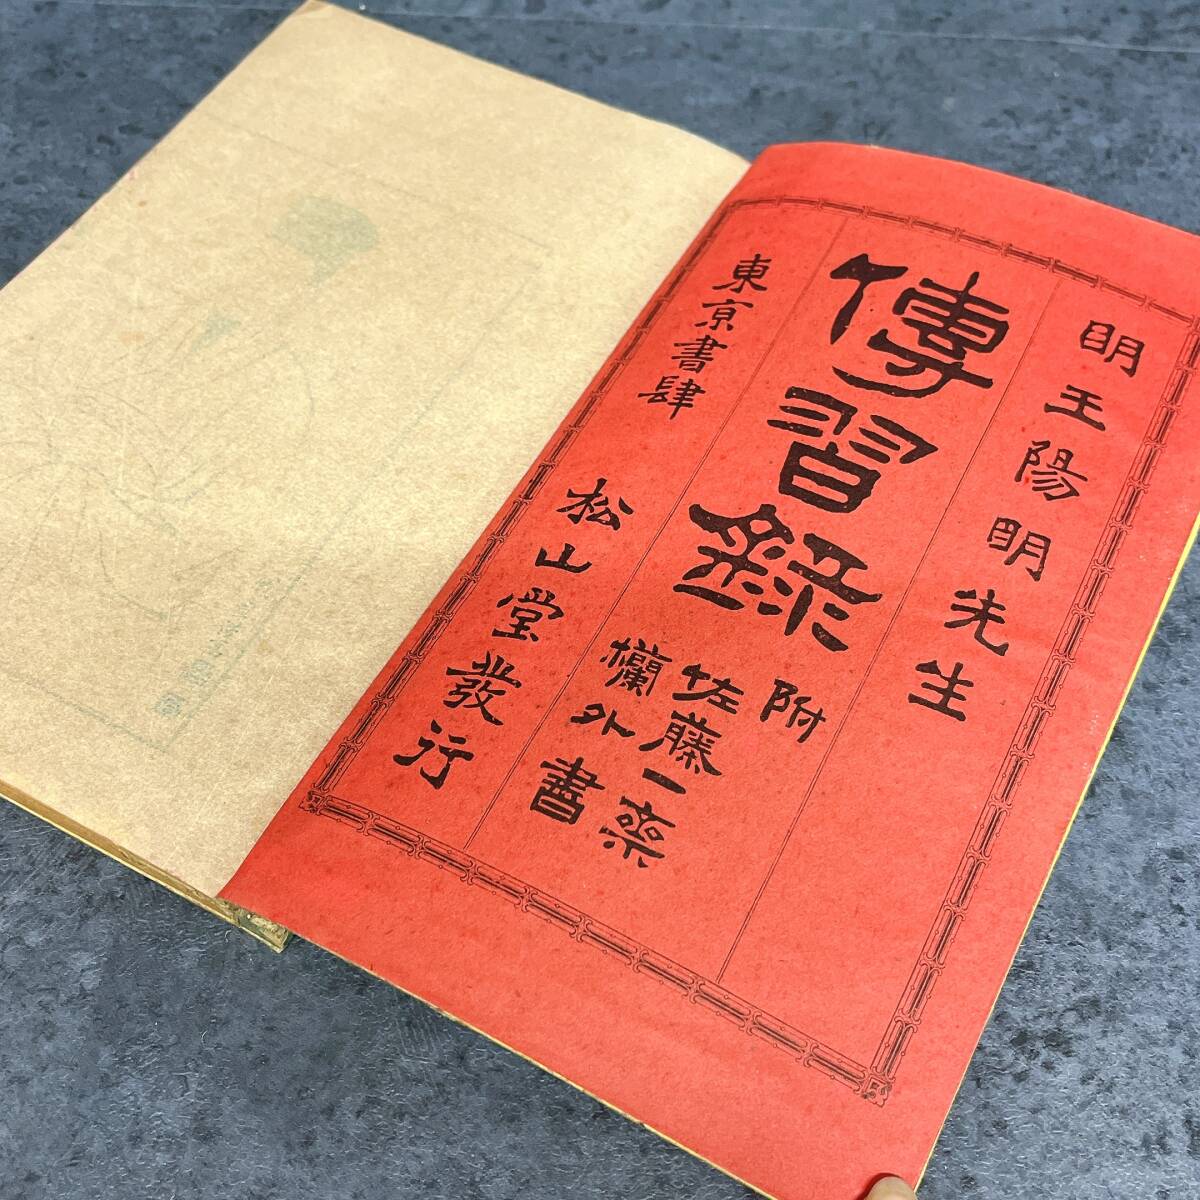 明王陽明先生
傳習錄
附
佐藤一齋
欄外書
東京書肆
松山堂發行